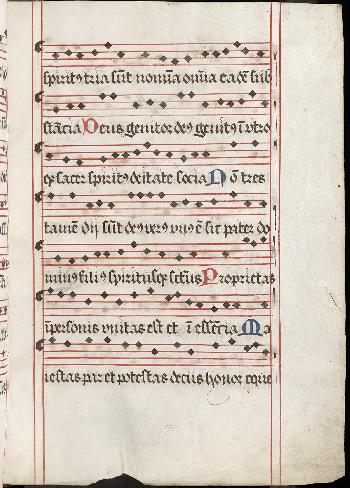 spirit9 tria sūt nomīa om̄ia eadē sub
stācia Deus genitor de9 genit9 ī utro
qȝ sacer spirit9 deitate socia N ō tres
tamē dij sūt de9 ver9 un9 ē sic pater do
min9 fili9 spiritusqȝ sct̄us Proprietas
ī personis unitas est et ī essēcia Ma
iestas par et potestas decus honor eque